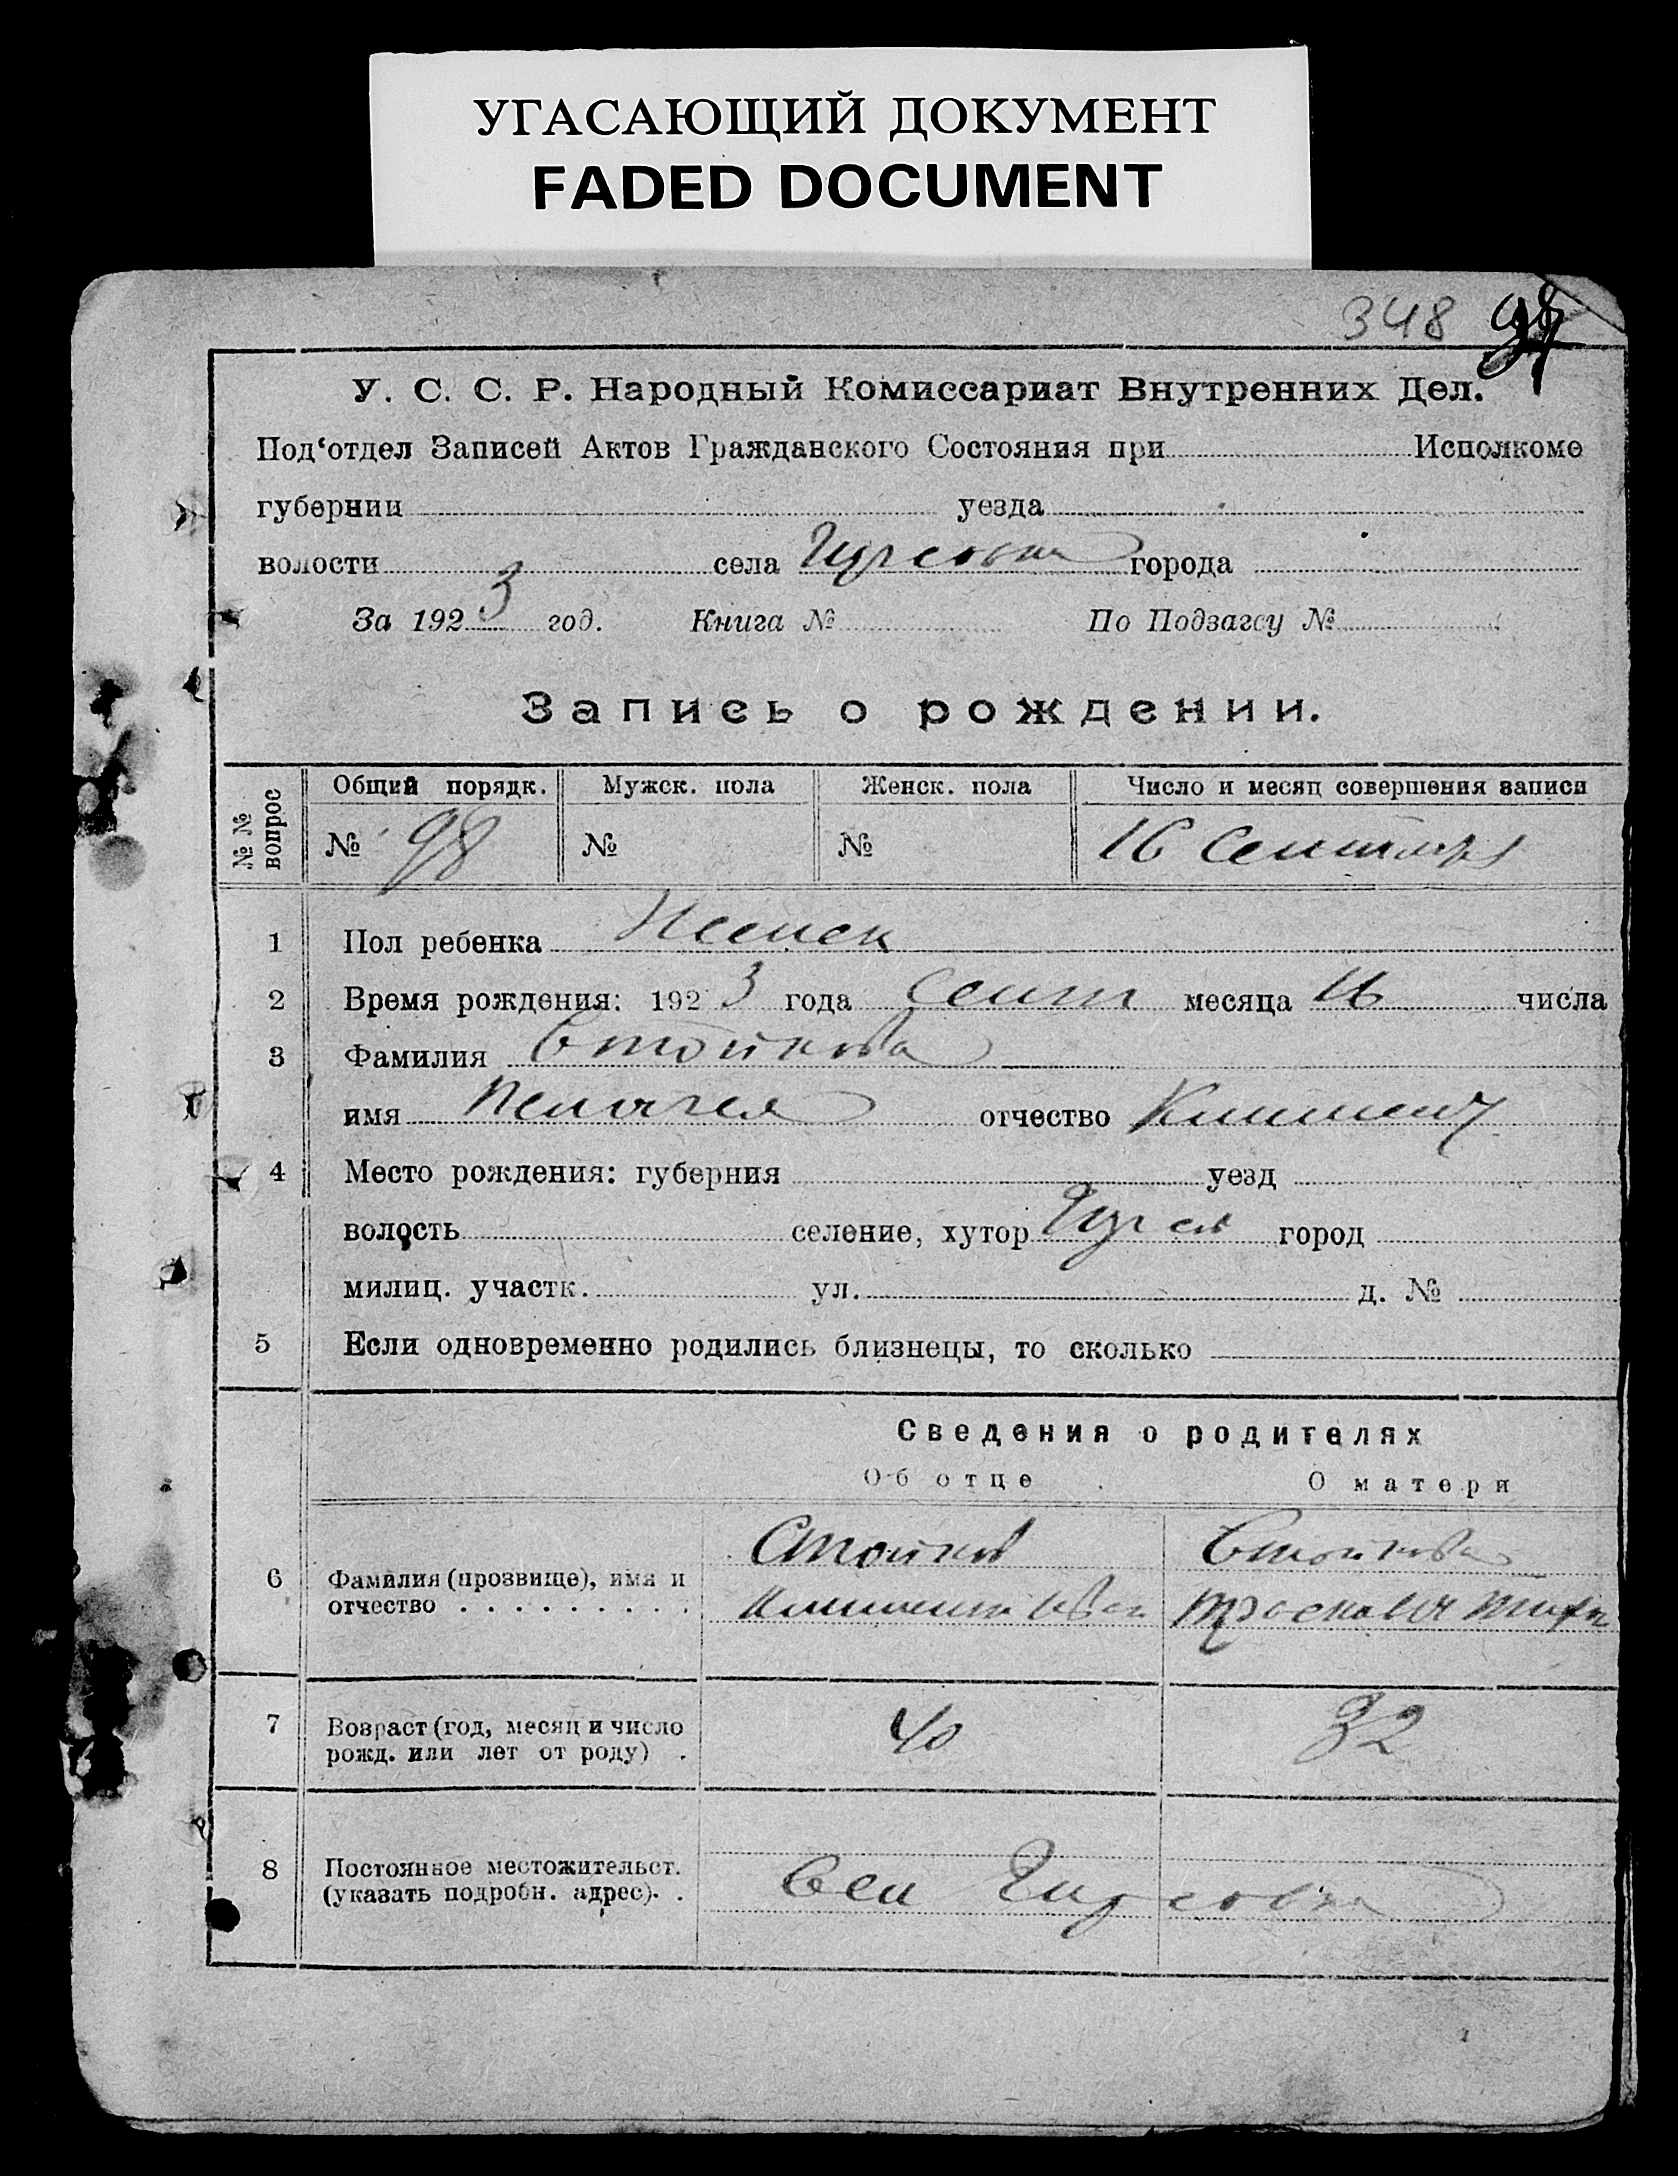 УГАСАЮЩИЙ ДОКУМЕНТ
FADED DOCUMENT
348 98
У. С. С. Р. Народный Комиссариат Внутренних Дел.
Под‘отдел Записей Актов Гражданского Состояния при Исполкоме
губернии уезда
волости села города
За 1923 год. Книга № По Подзагсу №
Запись о рождении.
№ № вопрос
Общий порядк. Мужск. пола Женск. пола Число и месяц совершения записи
№ 98 № № 16 Сентября
1 Пол ребенка Женск
2 Время рождения: 1923 года Сент месяца 16 числа
3 Фамилия Стойкова
имя Пелагея отчество Климент
4 Место рождения: губерния уезд
волость селение, хутор город
милиц. участк. ул. д. №
5 Если одновременно родились близнецы, то сколько
Сведения о родителях
Об отце О матери
Стойков Стойкова
6 Фамилия (прозвище), имя и отчество
Климент Иван
7 Возраст (год, месяц и число рожд. или лет от роду) 40 32
8 Постоянное местожительст. (указать подробн. адрес). Сел